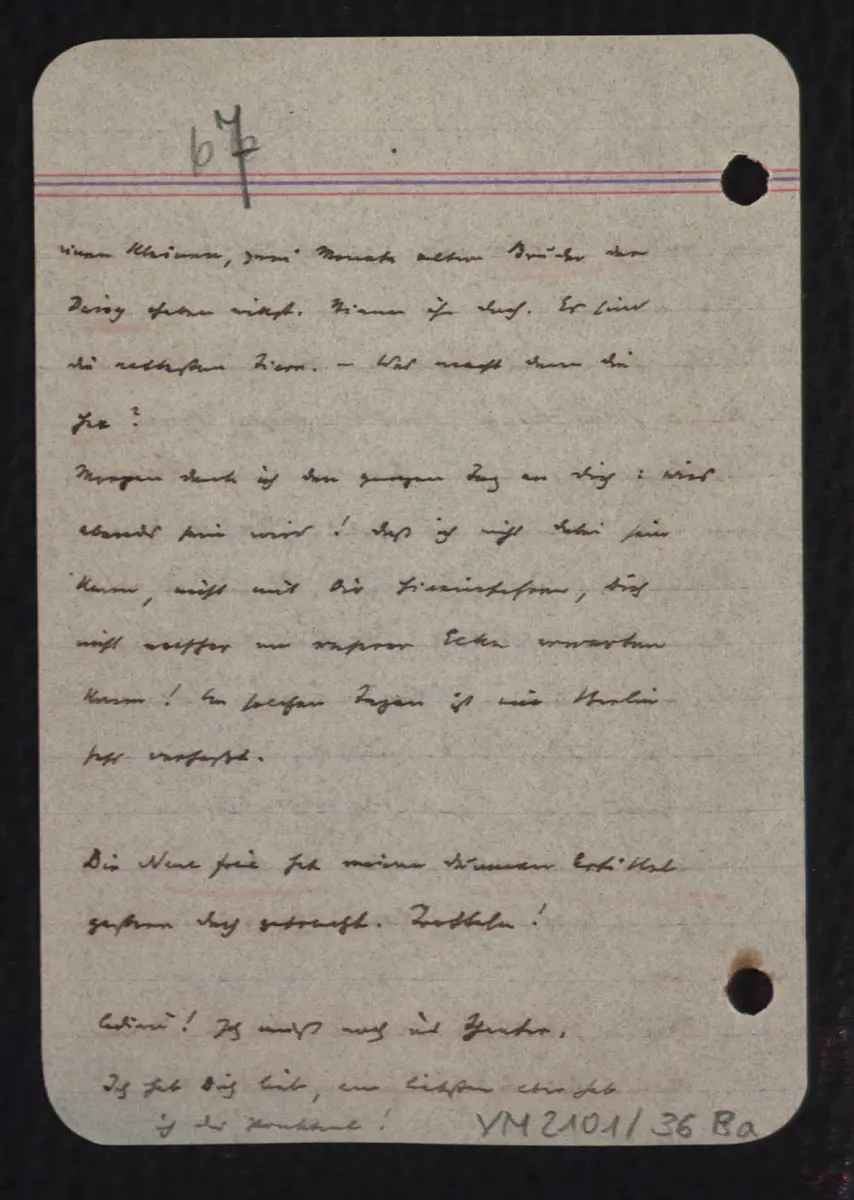 67
einen kleinen, zwei Monate alten Bruder der
Daisy haben willst. Nimm ihn doch. Es sind
die nettesten Tiere. – Was macht denn die
Morgen denk ich den ganzen Tag an Dich: wies
abends sein wird! Daß ich nicht dabei sein
kann, nicht mit Dir hineinfahren, Dich
nicht nachher an unsrer Ecke erwarten
kann! An solchen Tagen ist mir Berlin
sehr verhaßt.
Die Neue freie hat meinen dummen Artikel
gestern doch gebracht. Trotteln!
Adieu! Ich muß noch ins Theater.
Ich hab Dich lieb, am liebsten aber hab
ich
VM 2101/36 Ba